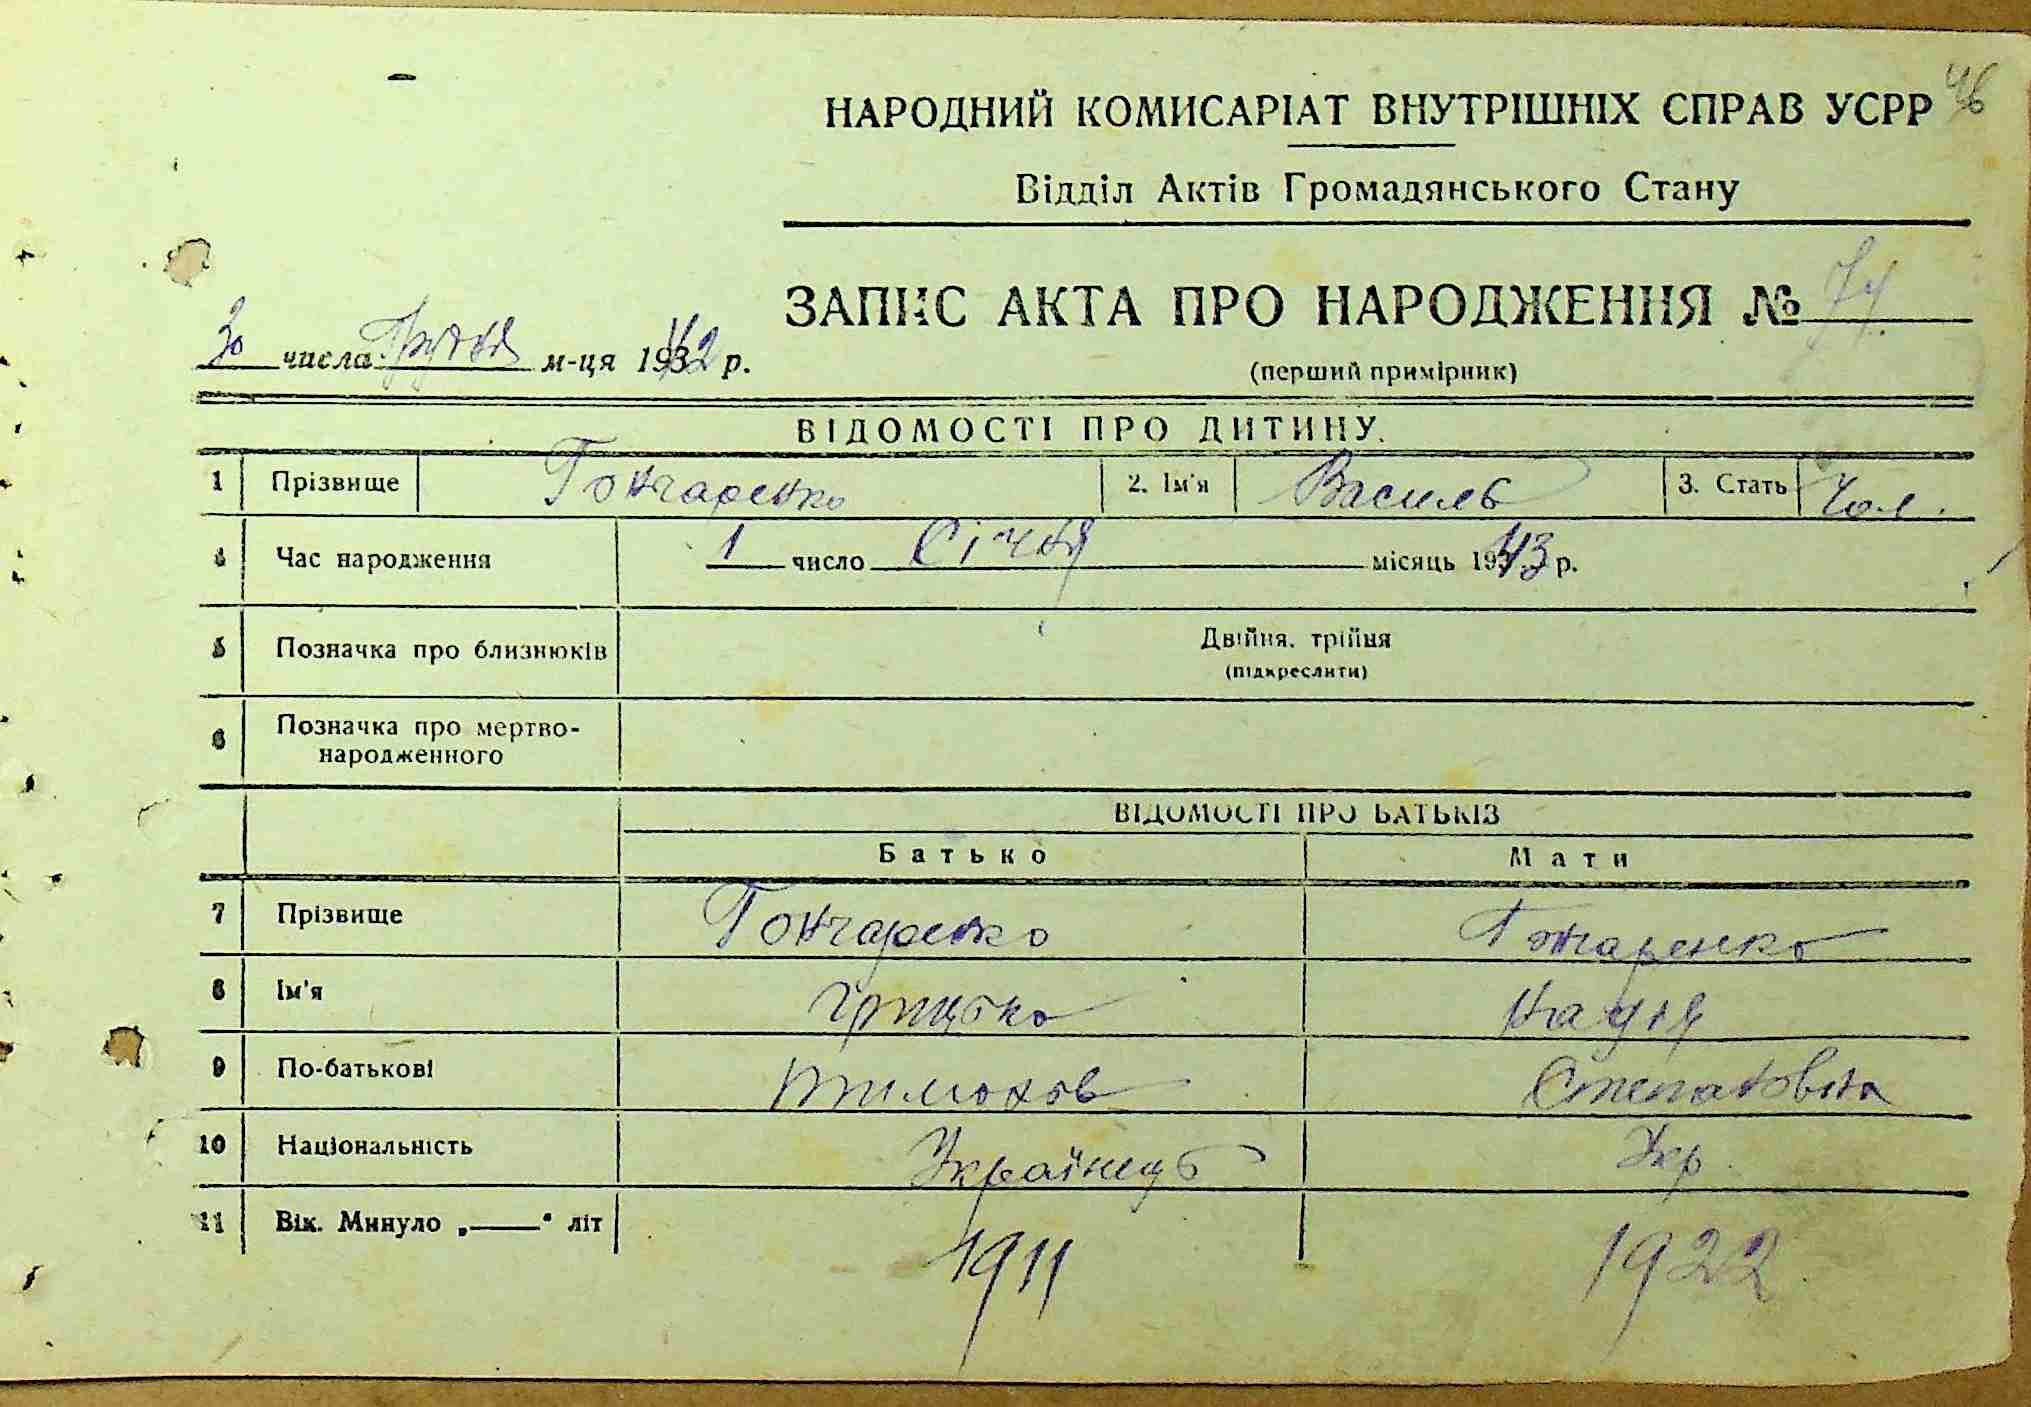 46
НАРОДНИЙ КОМИСАРІАТ ВНУТРІШНІХ СПРАВ УСРР
Відділ Актів Громадянського Стану
ЗАПИС АКТА ПРО НАРОДЖЕННЯ №
30 числа Грудня м-ця 1942 р.
(перший примірник)
ВІДОМОСТІ ПРО ДИТИНУ.
1 Прізвище Гончаренко 2. Ім'я Василь 3. Стать Чол.
4 Час народження 1 число Січня місяць 1943 р.
5 Позначка про близнюків Двійня, трійня
(підкреслити)
6 Позначка про мертво-
народженного
ВІДОМОСТІ ПРО БАТЬКІВ
Батько Мати
7 Прізвище Гончаренко Гончаренко
8 Ім'я Грицько Надія
9 По-батькові Тимохов Степановна
10 Національність Українець Укр.
11 Вік. Минуло „ “ літ 1911 1922